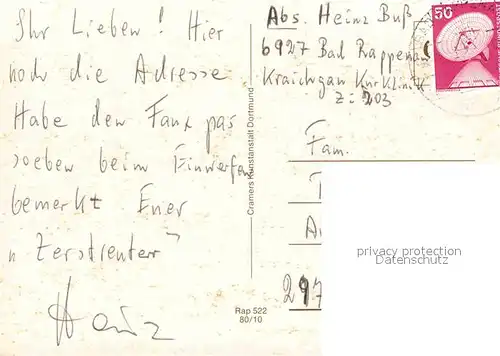 Ihr Lieben! Hier
noch die Adresse
Habe den Faux pas
soeben beim Einwerfen
bemerkt Euer
"Zerstreuter"
Heinz
Abs. Heinz Buß
6927 Bad Rappenau
Kraichgau Kurklinik
Z: 203
50
Fam.
297
Cramers Kunstanstalt Dortmund
Rap 522
80/10
privacy protection
Datenschutz